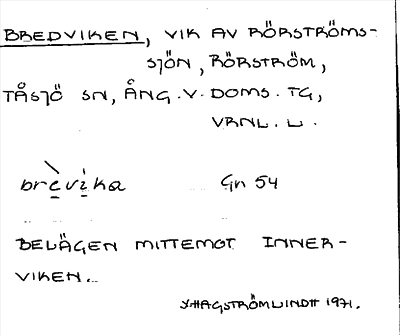 BREDVIKEN, VIK AV RÖRSTRÖMS-
SJÖN, RÖRSTRÖM,
TÅSJÖ SN, ÅNG.V.DOMS.TG,
VRNL. L.
brèvika Gn 54
BELÄGEN MITTEMOT INNER-
VIKEN.
HAGSTRÖMLINDH 1971.